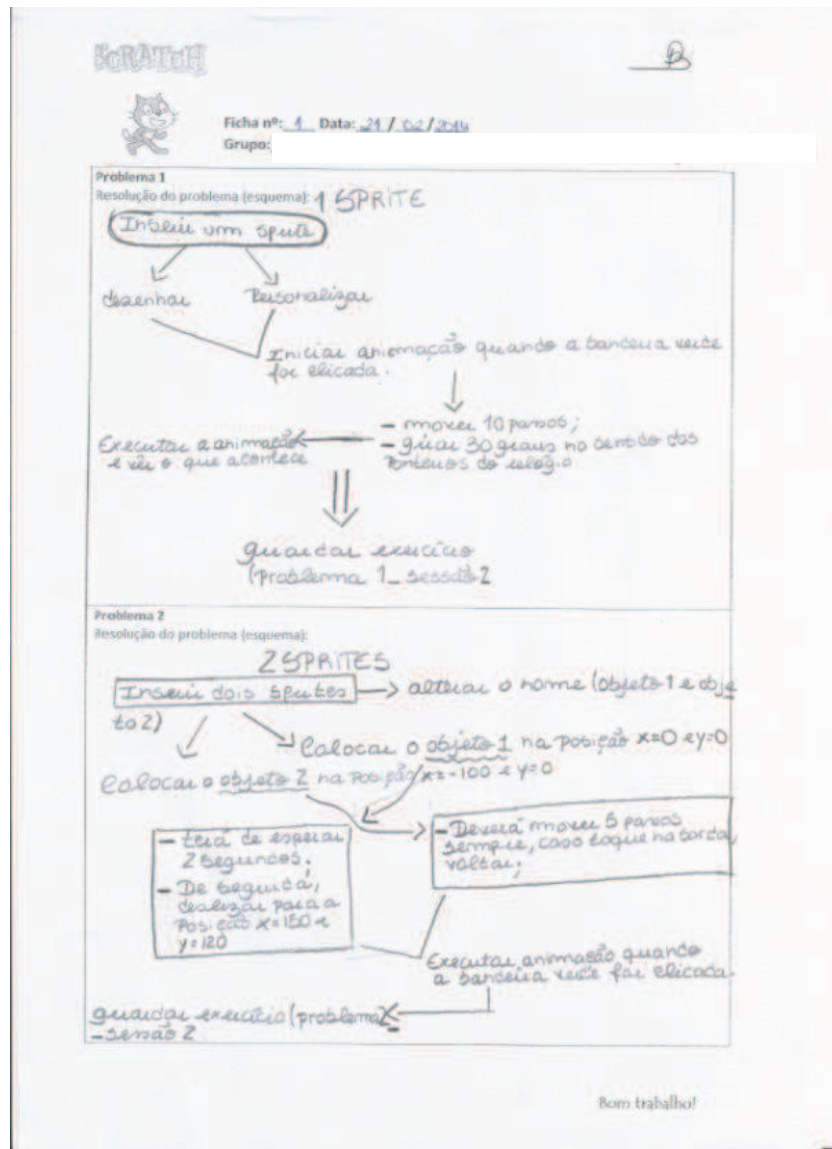 SCRATCH
B
Ficha nº: 1 Data: 21 / 02 / 2014
Grupo:
Problema 1
Resolução do problema (esquema): 1 SPRITE
Inserir um sprite
desenhar
Personalizar
Iniciar animação quando a bandeira verde
for clicada.
- mover 10 passos;
- girar 30 graus no sentido dos
ponteiros do relógio
Executar a animação
e vê o que acontece
guardar exercício
(problema 1_sessão 2
Problema 2
Resolução do problema (esquema):
2 SPRITES
Inserir dois sprites
alterar o nome (objeto 1 e obje
to 2)
Colocar o objeto 1 na posição x=0 e y=0
Colocar o objeto 2 na posição x=-100 e y=0
- terá de esperar
2 segundos.
- De seguida,
deslizar para a
posição x=150 e
y=120
- Deverá mover 5 passos
sempre, caso toque na borda,
voltar;
Executar animação quando
a bandeira verde for clicada.
guardar exercício (problema 2
-sessão 2
Bom trabalho!